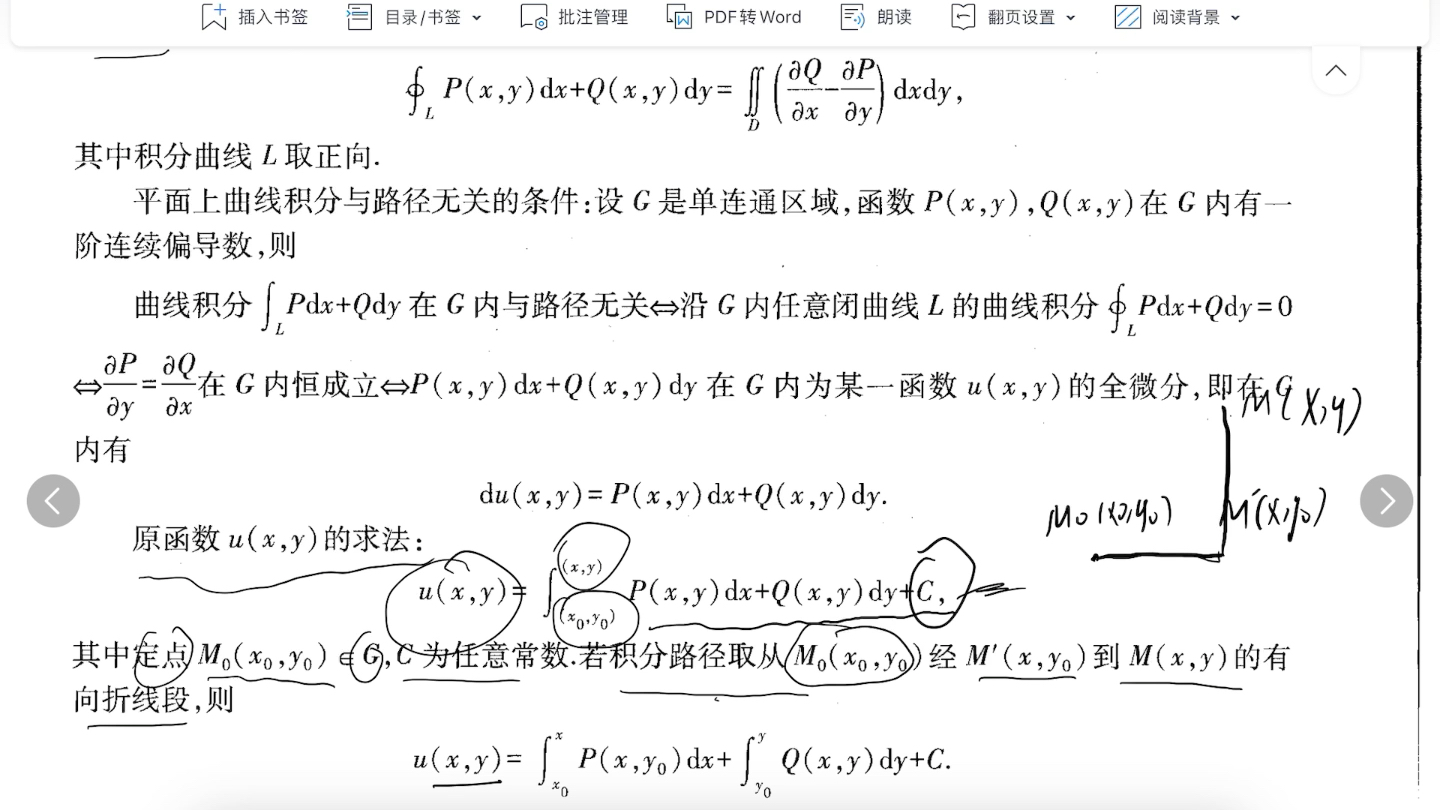 插入书签 目录/书签 批注管理 PDF转Word 朗读 翻页设置 阅读背景
∮_L P(x,y)dx+Q(x,y)dy=∬_D(∂Q/∂x-∂P/∂y)dxdy,
其中积分曲线 L 取正向.
平面上曲线积分与路径无关的条件:设 G 是单连通区域,函数 P(x,y),Q(x,y)在 G 内有一
阶连续偏导数,则
曲线积分∫_L Pdx+Qdy 在 G 内与路径无关⇔沿 G 内任意闭曲线 L 的曲线积分∮_L Pdx+Qdy=0
⇔∂P/∂y=∂Q/∂x在 G 内恒成立⇔P(x,y)dx+Q(x,y)dy 在 G 内为某一函数 u(x,y)的全微分,即在 G
M(x,y)
内有
du(x,y)=P(x,y)dx+Q(x,y)dy.
M0(x0,y0) M'(x,y0)
原函数 u(x,y)的求法:
u(x,y)=∫_(x₀,y₀)^(x,y) P(x,y)dx+Q(x,y)dy+C,
其中定点 M₀(x₀,y₀)∈G,C 为任意常数.若积分路径取从 M₀(x₀,y₀)经 M'(x,y₀)到 M(x,y)的有
向折线段,则
u(x,y)=∫_x₀^x P(x,y₀)dx+∫_y₀^y Q(x,y)dy+C.